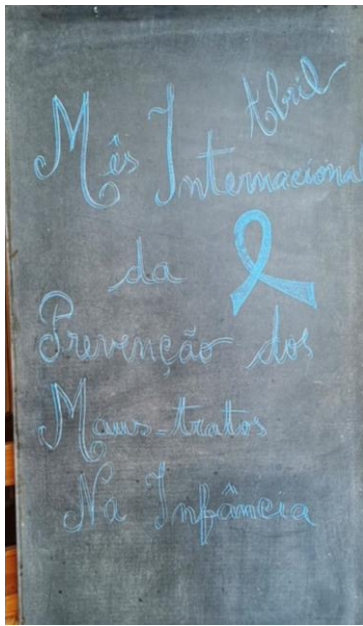 Abril
Mês Internacional
da
Prevenção dos
Maus-tratos
Na Infância